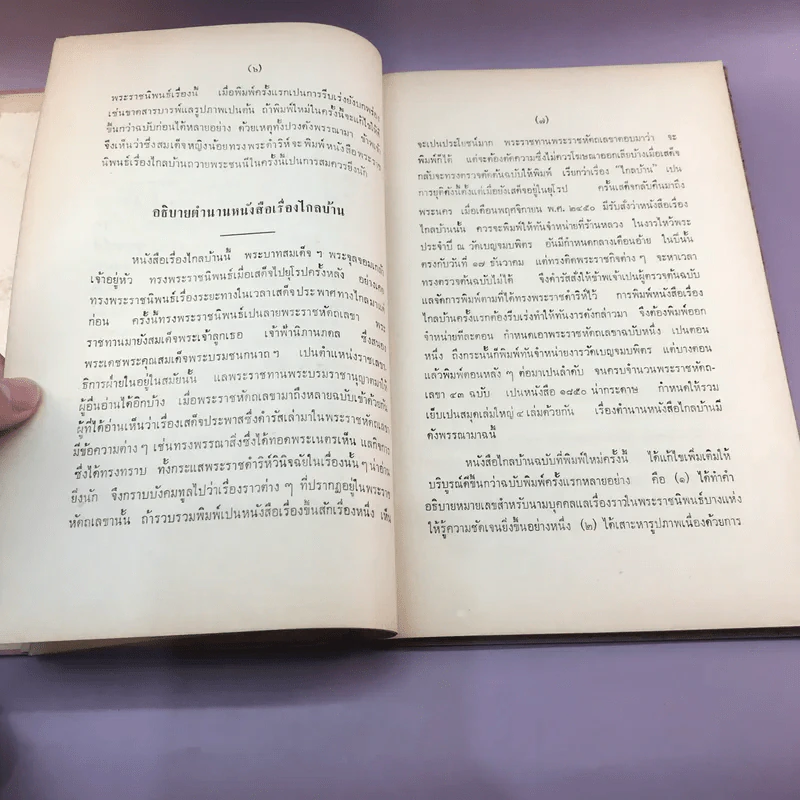 (๖)
พระราชนิพนธ์เรื่องนี้ เมื่อพิมพ์ครั้งแรกเปนการรีบเร่งยังบกพร่อง
เช่นขาดสารบารพ์แลรูปภาพเปนต้น ถ้าพิมพ์ใหม่ในครั้งนี้จะแก้ไขให้ดี
ขึ้นกว่าฉบับก่อนได้หลายอย่าง ด้วยเหตุทั้งปวงดังพรรณามา
จึงเห็นว่าซึ่งสมเด็จหญิงน้อยทรงพระดำริห์จะพิมพ์หนังสือพระราช
นิพนธ์เรื่องไกลบ้านถวายพระชนนีในครั้งนี้เปนการสมควรยิ่งนัก
อธิบายตำนานหนังสือเรื่องไกลบ้าน
หนังสือเรื่องไกลบ้านนี้ พระบาทสมเด็จ ฯ พระจุลจอมเกล้า
เจ้าอยู่หัว ทรงพระราชนิพนธ์เมื่อเสด็จไปยุโรปครั้งหลัง อย่างเคย
ทรงพระราชนิพนธ์เรื่องระยะทางในเวลาเสด็จประพาศทางไกลมาแต่
ก่อน ครั้งนี้ทรงพระราชนิพนธ์เปนลายพระราชหัดถเลขา พระ
ราชทานมายังสมเด็จพระเจ้าลูกเธอ เจ้าฟ้านิภานภดล ซึ่งสนอง
พระเดชพระคุณสมเด็จพระบรมชนกนาถ ฯ เปนตำแหน่งราชเลขา
ธิการฝ่ายในอยู่ในสมัยนั้น แลพระราชทานพระบรมราชานุญาตมาให้
ผู้อื่นอ่านได้อีกบ้าง เมื่อพระราชหัดถเลขามาถึงหลายฉบับเข้าด้วยกัน
ผู้ที่ได้อ่านเห็นว่าเรื่องเสด็จประพาสซึ่งดำรัสเล่ามาในพระราชหัดถเลขา
มีข้อความต่าง ๆ เช่นทรงพรรณาสิ่งซึ่งได้ทอดพระเนตรเห็น แลกิจการ
ซึ่งได้ทรงทราบ ทั้งกระแสพระราชดำริห์วินิจฉัยในเรื่องนั้น ๆ น่าอ่าน
ยิ่งนัก จึงกราบบังคมทูลไปว่าเรื่องราวต่าง ๆ ที่ปรากฏอยู่ในพระราช
หัดถเลขานั้น ถ้ารวบรวมพิมพ์เปนหนังสือเรื่องขึ้นสักเรื่องหนึ่ง เห็น
(๗)
จะเปนประโยชน์มาก พระราชทานพระราชหัดถเลขาตอบมาว่า จะ
พิมพ์ก็ได้ แต่จะต้องตัดความซึ่งไม่ควรโฆษณาออกเสียบ้างเมื่อเสด็จ
กลับจะทรงตรวจตัดต้นฉบับให้พิมพ์ เรียกว่าเรื่อง "ไกลบ้าน" เปน
การยุติดังนี้ตั้งแต่เมื่อยังเสด็จอยู่ในยุโรป ครั้นเสด็จกลับคืนมาถึง
พระนคร เมื่อเดือนพฤศจิกายน พ.ศ. ๒๔๕๐ มีรับสั่งว่าหนังสือเรื่อง
ไกลบ้านนั้น ควรจะพิมพ์ให้ทันจำหน่ายที่ร้านหลวง ในงารไหว้พระ
ประจำปี ณ วัดเบญจมบพิตร อันมีกำหนดกลางเดือนอ้าย ในปีนั้น
ตรงกับวันที่ ๑๗ ธันวาคม แต่ทรงติดพระราชกิจต่าง ๆ จะหาเวลา
ทรงตรวจต้นฉบับไม่ได้ จึงดำรัสสั่งให้ข้าพเจ้าเปนผู้ตรวจต้นฉบับ
แลจัดการพิมพ์ตามที่ได้ทรงพระราชดำริห์ไว้ การพิมพ์หนังสือเรื่อง
ไกลบ้านครั้งแรกต้องรีบเร่งทำให้ทันงารดังกล่าวมา จึงต้องพิมพ์ออก
จำหน่ายทีละตอน กำหนดเอาพระราชหัดถเลขาฉบับหนึ่ง เปนตอน
หนึ่ง ถึงกระนั้นก็พิมพ์ทันจำหน่ายงารวัดเบญจมบพิตร แต่บางตอน
แล้วพิมพ์ตอนหลัง ๆ ต่อมาเปนลำดับ จนครบจำนวนพระราชหัดถ-
เลขา ๔๓ ฉบับ เปนหนังสือ ๑๘๕๐ น่ากระดาษ กำหนดให้รวม
เย็บเปนสมุดเล่มใหญ่ ๔ เล่มด้วยกัน เรื่องตำนานหนังสือไกลบ้านมี
ดังพรรณามาฉนี้
หนังสือไกลบ้านฉบับที่พิมพ์ใหม่ครั้งนี้ ได้แก้ไขเพิ่มเติมให้
บริบูรณ์ดีขึ้นกว่าฉบับพิมพ์ครั้งแรกหลายอย่าง คือ (๑) ได้ทำคำ
อธิบายหมายเลขสำหรับนามบุคคลแลเรื่องราวในพระราชนิพนธ์บางแห่ง
ให้รู้ความชัดเจนยิ่งขึ้นอย่างหนึ่ง (๒) ได้เสาะหารูปภาพเนื่องด้วยการ